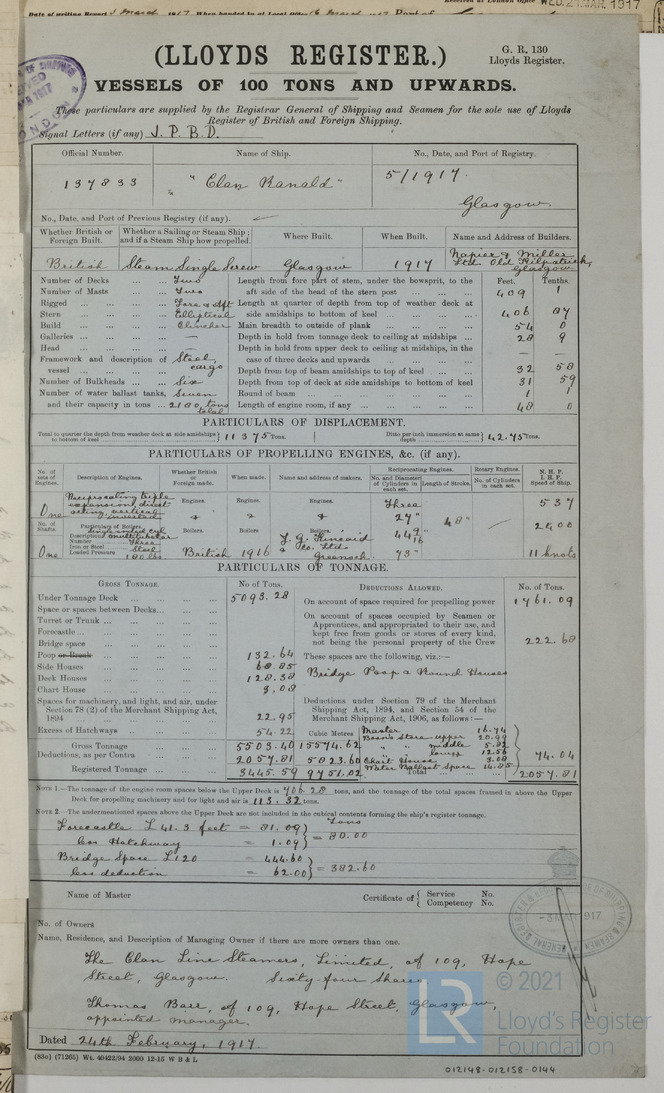 Date of writing Report 5 March 1917 When handed in at Local Office 16 March 1917 Port of
Received at London Office WED. 21 MAR. 1917
(LLOYDS REGISTER.)
G. R. 130
Lloyds Register.
VESSELS OF 100 TONS AND UPWARDS.
These particulars are supplied by the Registrar General of Shipping and Seamen for the sole use of Lloyds
Register of British and Foreign Shipping.
Signal Letters (if any) J. P. B. D.
Official Number. Name of Ship. No., Date, and Port of Registry.
137833 "Clan Ranald" 5/1917.
Glasgow.
No., Date, and Port of Previous Registry (if any).
Whether British or Foreign Built. Whether a Sailing or Steam Ship; and if a Steam Ship how propelled. Where Built. When Built. Name and Address of Builders.
British Steam Single Screw Glasgow 1917 Napier & Miller Ltd. Old Kilpatrick, Glasgow
Number of Decks ... Two Length from fore part of stem, under the bowsprit, to the Feet. Tenths.
Number of Masts ... Two aft side of the head of the stern post 409 1
Rigged ... Fore & Aft Length at quarter of depth from top of weather deck at
Stern ... Elliptical side amidships to bottom of keel 406 87
Build ... Clencher Main breadth to outside of plank 54 0
Galleries ... — Depth in hold from tonnage deck to ceiling at midships 28 9
Head ... — Depth in hold from upper deck to ceiling at midships, in the
Framework and description of vessel ... Steel, cargo case of three decks and upwards — —
Depth from top of beam amidships to top of keel 32 58
Number of Bulkheads ... Six Depth from top of deck at side amidships to bottom of keel 31 59
Number of water ballast tanks, Seven Round of beam 1 1
and their capacity in tons ... 2180 tons total Length of engine room, if any 48 0
PARTICULARS OF DISPLACEMENT.
Total to quarter the depth from weather deck at side amidships to bottom of keel } 11375 Tons. Ditto per inch immersion at same depth } 42.75 Tons.
PARTICULARS OF PROPELLING ENGINES, &c. (if any).
No. of sets of Engines. Description of Engines. Whether British or Foreign made. When made. Name and address of makers. Reciprocating Engines. Rotary Engines. N. H. P.
No. and Diameter of Cylinders in each set. Length of Stroke. No. of Cylinders in each set. I. H. P. Speed of Ship.
One Reciprocating triple expansion, direct acting, vertical inverted Engines. Engines. Engines. Three 537
27" 48"
No. of Shafts. Particulars of Boilers. Boilers. Boilers Boilers. 2600
Description Single ended cyl. multitubular
Number Three
Iron or Steel Steel
One Loaded Pressure 180 lbs British 1916 J. G. Kincaid & Co. Ltd. Greenock 73" 11 knots
PARTICULARS OF TONNAGE.
GROSS TONNAGE. No of Tons. DEDUCTIONS ALLOWED. No. of Tons.
Under Tonnage Deck 5093.28 On account of space required for propelling power 1761.09
Space or spaces between Decks
Turret or Trunk
Forecastle
Bridge space
On account of spaces occupied by Seamen or
Apprentices, and appropriated to their use, and
kept free from goods or stores of every kind,
not being the personal property of the Crew 222.68
Poop or Break 132.64 These spaces are the following, viz.:—
Side Houses 68.85
Deck Houses 128.38 Bridge Poop & Round Houses
Chart House 3.08
Spaces for machinery, and light, and air, under
Section 78 (2) of the Merchant Shipping Act,
1894 22.95
Deductions under Section 79 of the Merchant
Shipping Act, 1894, and Section 54 of the
Merchant Shipping Act, 1906, as follows:—
Excess of Hatchways 54.22 Cubic Metres Master 16.74
Bosn's Store upper 20.99
Gross Tonnage 5503.40 15574.62 " " middle 5.82
" " lower 12.56
Deductions, as per Contra 2057.81 5823.60 Chart House 3.08
Water Ballast Space 14.85 74.04
Registered Tonnage 3445.59 9751.02 Total 2057.81
NOTE 1.—The tonnage of the engine room spaces below the Upper Deck is 706.28 tons, and the tonnage of the total spaces framed in above the Upper
Deck for propelling machinery and for light and air is 113.32 tons.
NOTE 2.—The undermentioned spaces above the Upper Deck are not included in the cubical contents forming the ship's register tonnage.
Forecastle L 41.3 feet = 81.09 } Tons
less Hatchway = 1.09 } = 80.00
Bridge Space L 120 = 444.60 }
less deduction = 62.00 } = 382.60
Name of Master Certificate of { Service No.
Competency No.
No. of Owners
Name, Residence, and Description of Managing Owner if there are more owners than one.
The Clan Line Steamers, Limited, of 109, Hope
Street, Glasgow. Sixty-four Shares
Thomas Barr, of 109, Hope Street, Glasgow,
appointed manager.
Dated 24th February, 1917.
(83o) (71265) Wt. 40422/94 2000 12-15 W B & L
© 2021
LR Lloyd's Register
Foundation
012148-012158-0144